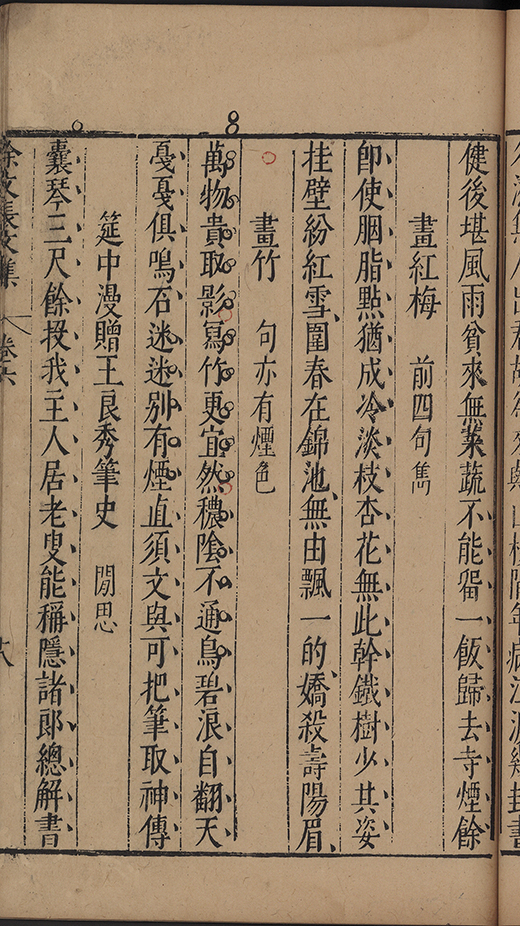 健後堪風雨貧來無菓蔬不能畱一飯歸去寺煙餘
畫紅梅 前四句雋
卽使胭脂點猶成冷淡枝杏花無此幹鐵樹少其姿
挂壁紛紅雪圍春在錦池無由飄一的嬌殺壽陽眉
畫竹 句亦有煙色
萬物貴取影寫竹更宜然穠陰不通鳥碧浪自翻天
戞戞俱鳴石迷迷別有煙直須文與可把筆取神傳
筵中漫贈王良秀筆史 閒思
囊琴三尺餘投我主人居老叟能稱隱諸郎總解書
徐文長文集 卷六